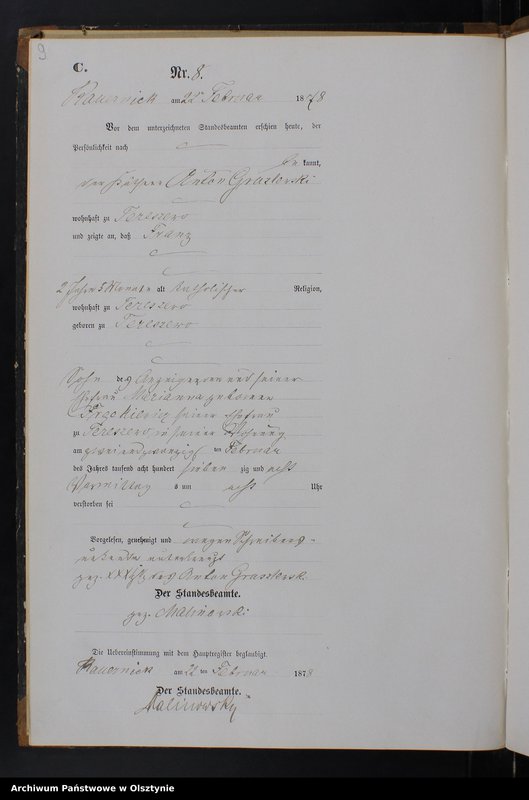 9
C.
Nr. 8.
Kauernick am 22 ten Februar 1878
Vor dem unterzeichneten Standesbeamten erschien heute, der
Persönlichkeit nach
be kannt,
der Anton
wohnhaft zu Tereszewo
und zeigte an, daß Franz
2 Jahre 5 Monate alt katholischer Religion,
wohnhaft zu Tereszewo
geboren zu Tereszewo
Sohn des Anzeigenden und seiner
Ehefrau Marianna geborenen
seiner Ehefrau
zu Tereszewo in seiner Wohnung
am zwei und zwanzigsten ten Februar
des Jahres tausend acht hundert sieben zig und acht
Vormittag s um acht Uhr
verstorben sei
Vorgelesen, genehmigt und wegen Schreibens-
unkunde unterkreuzt
gez. XXX des Anton
Der Standesbeamte.
gez. Malinowski
Die Uebereinstimmung mit dem Hauptregister beglaubigt.
Kauernick am 22 ten Februar 1878
Der Standesbeamte.
Malinowsky
Archiwum Państwowe w Olsztynie